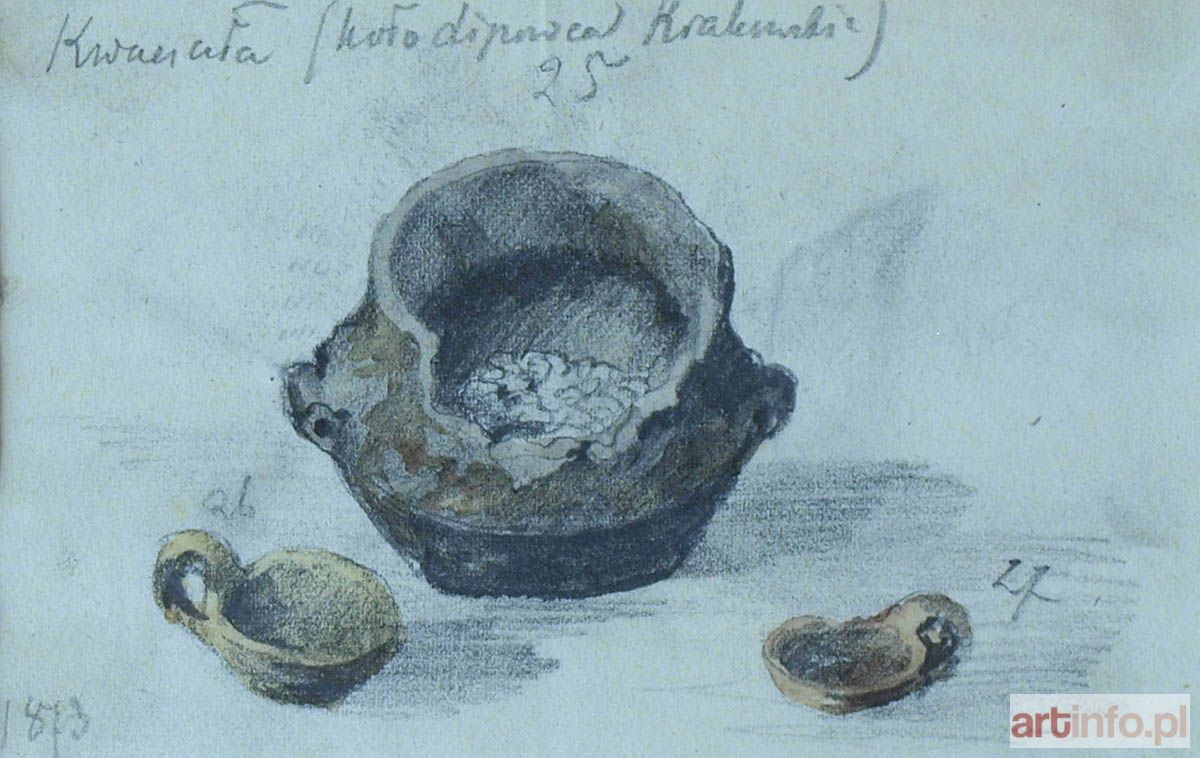 Kwaczała (koło Lipowca Krakowskie)
25
26
27.
1873
artinfo.pl